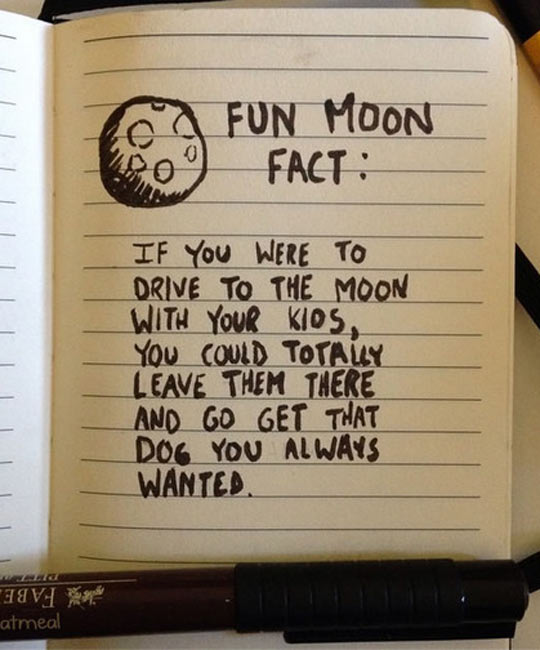 FUN MOON
FACT:
IF YOU WERE TO
DRIVE TO THE MOON
WITH YOUR KIDS,
YOU COULD TOTALLY
LEAVE THEM THERE
AND GO GET THAT
DOG YOU ALWAYS
WANTED.
FABE
atmeal